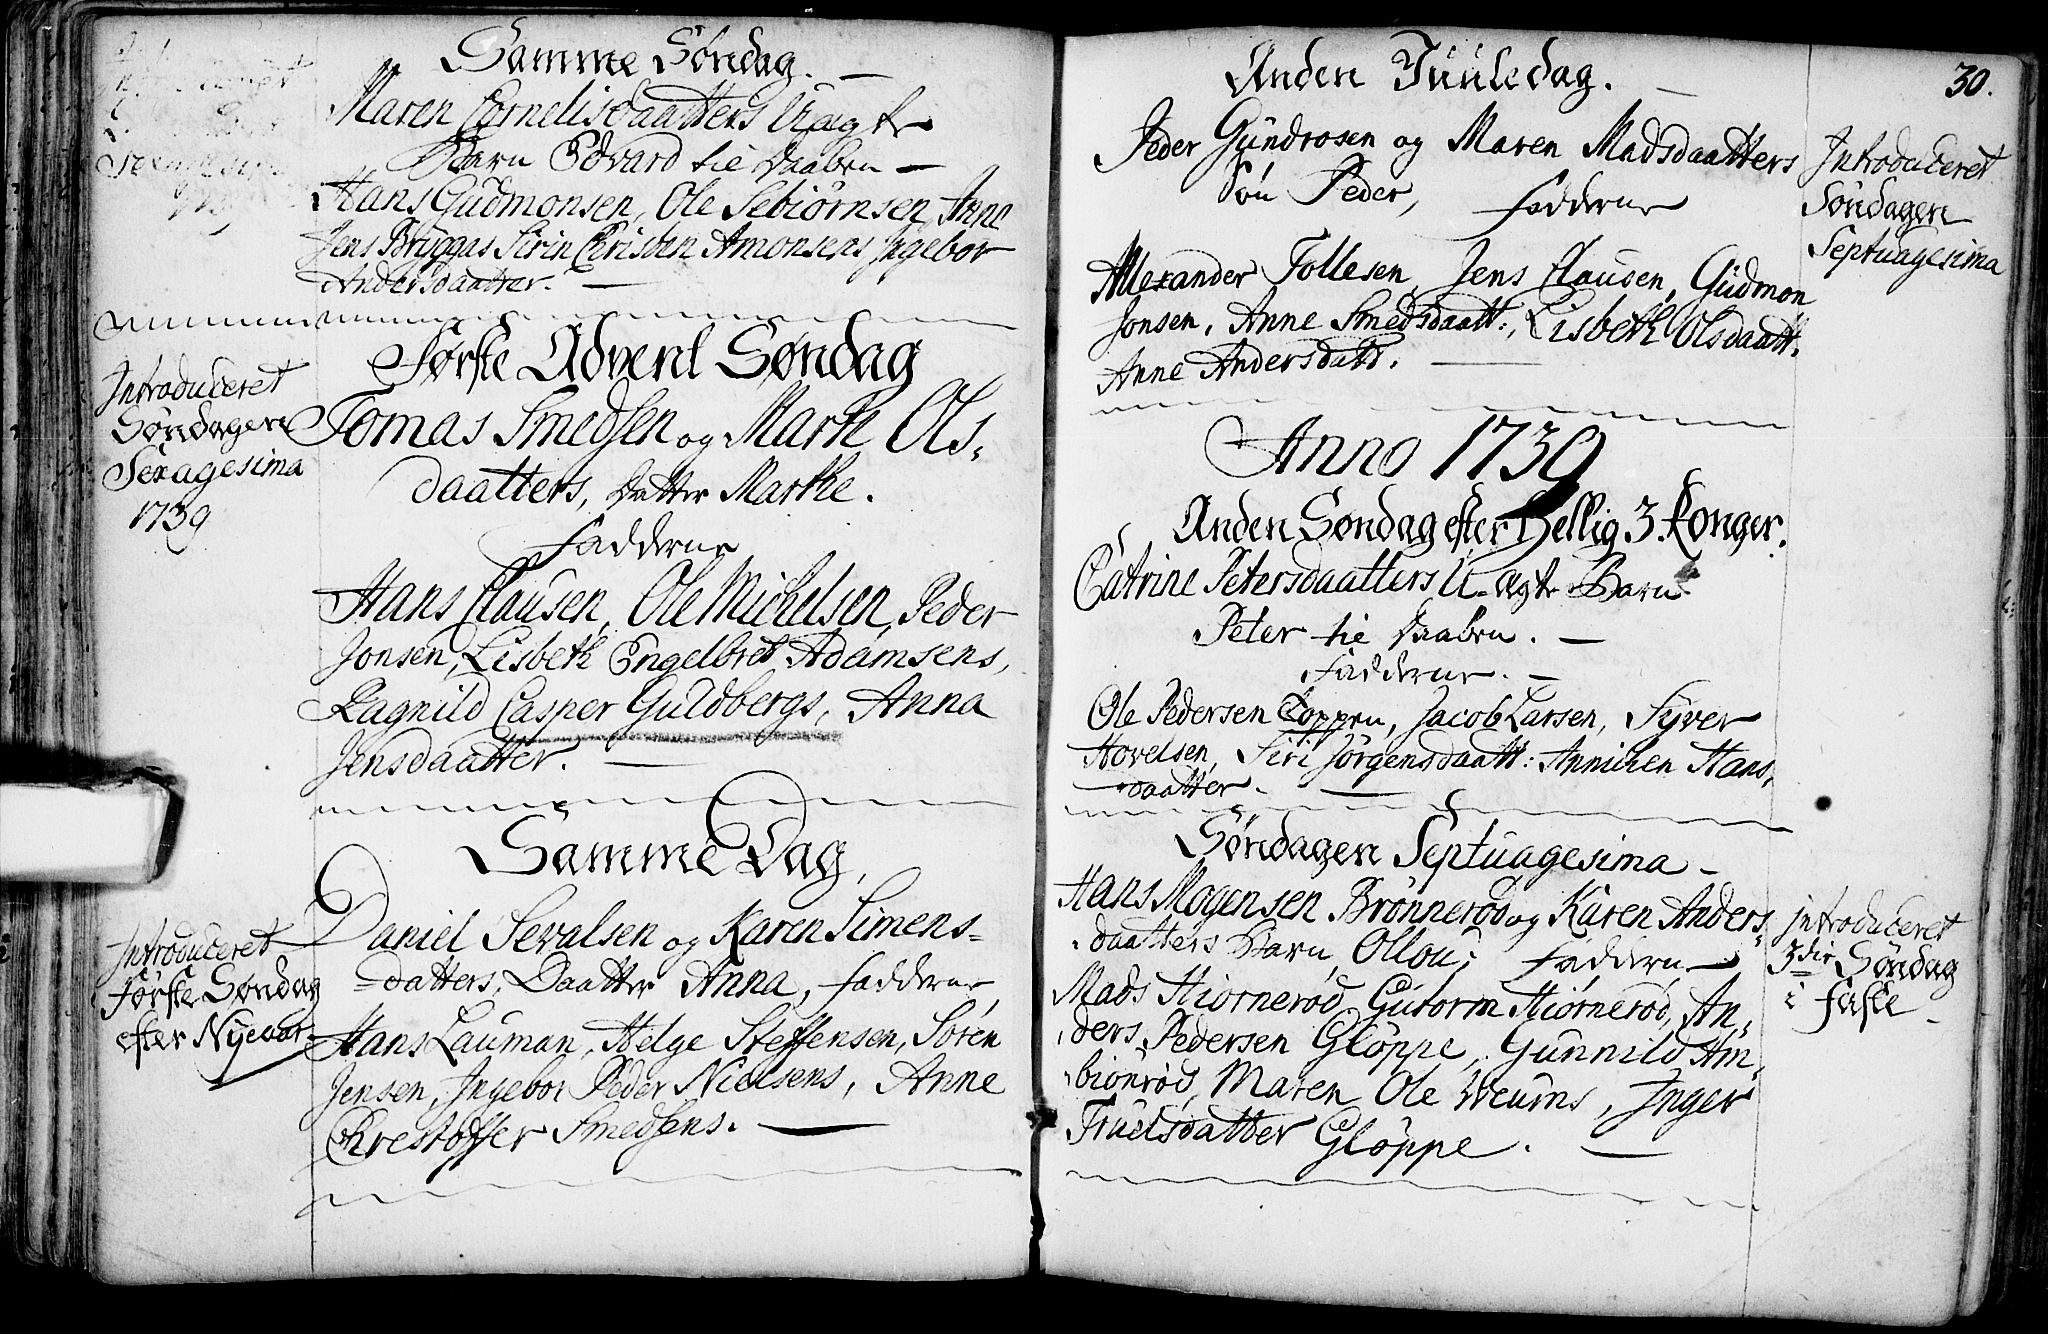 Samme Søndag.
Maren Cornelisdaatters Uægte
Barn Edvard til Daaben
Hans Gudmonsen, Ole Sebiørnsen, Anne
Jens Brÿggas Sirin Christen Amonsens Ingebor
Andersdaatter.
Introduceret
Søndagen
Sexagesima
1739
Første Advent Søndag
Tomas Smedsen og Marte Ols-
daatters, Datter Marthe.
Fadderne
Hans Clausen, Ole Michelsen, Peder
Jonsen, Lisbeth Engelbret Adamsens,
Ragnild Casper Guldbergs, Anna
Jensdaatter.
Samme Dag,
Introduceret
Første Søndag
efter Nyeaar
Daniel Sevalsen og Karen Simens-
datters, Daatter Anna, Fadderne,
Hans Lauman, Helge Steffensen, Sören
Jensen, Ingebor Peder Nielsens, Anne
Chrestoffer Smedsens.
30.
Anden Juuledag.
Peder Gundrosen og Maren Madsdaatters
Søn Peder, Fadderne
Introduceret
Søndagen
Septuagesima
Allexander Tollesen, Jens Clausen, Gudmon
Jonsen, Anne Smedsdaatt:, Lisbeth Olsdaatt.
Anne Andersdatt.
Anno 1739
Anden Søndag efter Hellig 3. Konger.
Catrine Petersdaatters U-ægte Barn
Peter til Daaben.
Fadderne.
Ole Pedersen Coppen, Jacob Larsen, Syver
Hovelsen, Siri Jörgensdaatt: Annichen Hans,
daatter.
Søndagen Septuagesima
Hans Mogensen Brönnerød og Karen Anders,
daatters Barn, Ollou; Fadderne
Introduceret
3die Søndag
i Faste
Mads Hiørnerød, Gutorm Hiørnerød, An,
ders Pedersen Glöppe, Gunnild Am,
biönrød, Maren Ole Weums, Inger
Truelsdatter Glöppe.